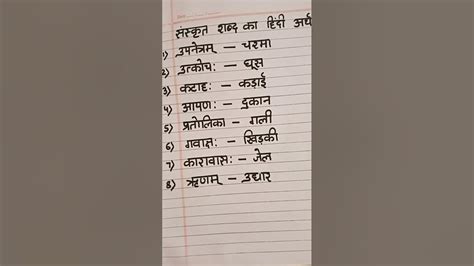 संस्कृत शब्द का हिंदी अर्थ
1) उपनेत्रम् – चश्मा
2) उत्कोचः – घूस
3) कटाहः – कड़ाई
4) आपणः – दुकान
5) प्रतोलिका – गली
6) गवाक्षः – खिड़की
7) कारावासः – जेल
8) ऋणम् – उधार